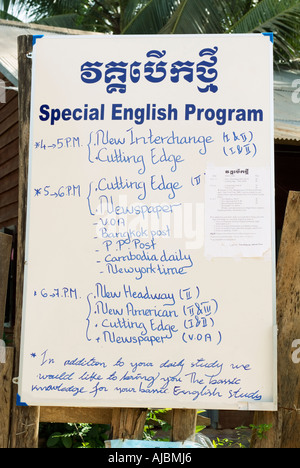 វគ្គបើកថ្មី
Special English Program
*4→5 P.M. .New Interchange (I & II)
.Cutting Edge (I & II)
*5→6 PM .Cutting Edge (II
.Newspaper
- VOA
- Bangkok post
- P. Pº Post
- Cambodia daily
- Newyork time
*6→7. P.M. .New Headway (II)
.New American (II & III)
.Cutting Edge (I & II)
.Newspaper (V.O.A)
* In addition to your daily study we
would like to bring you The basic
knowledge for your basic English study.
alamy
Image ID: AJBMJ6
www.alamy.com